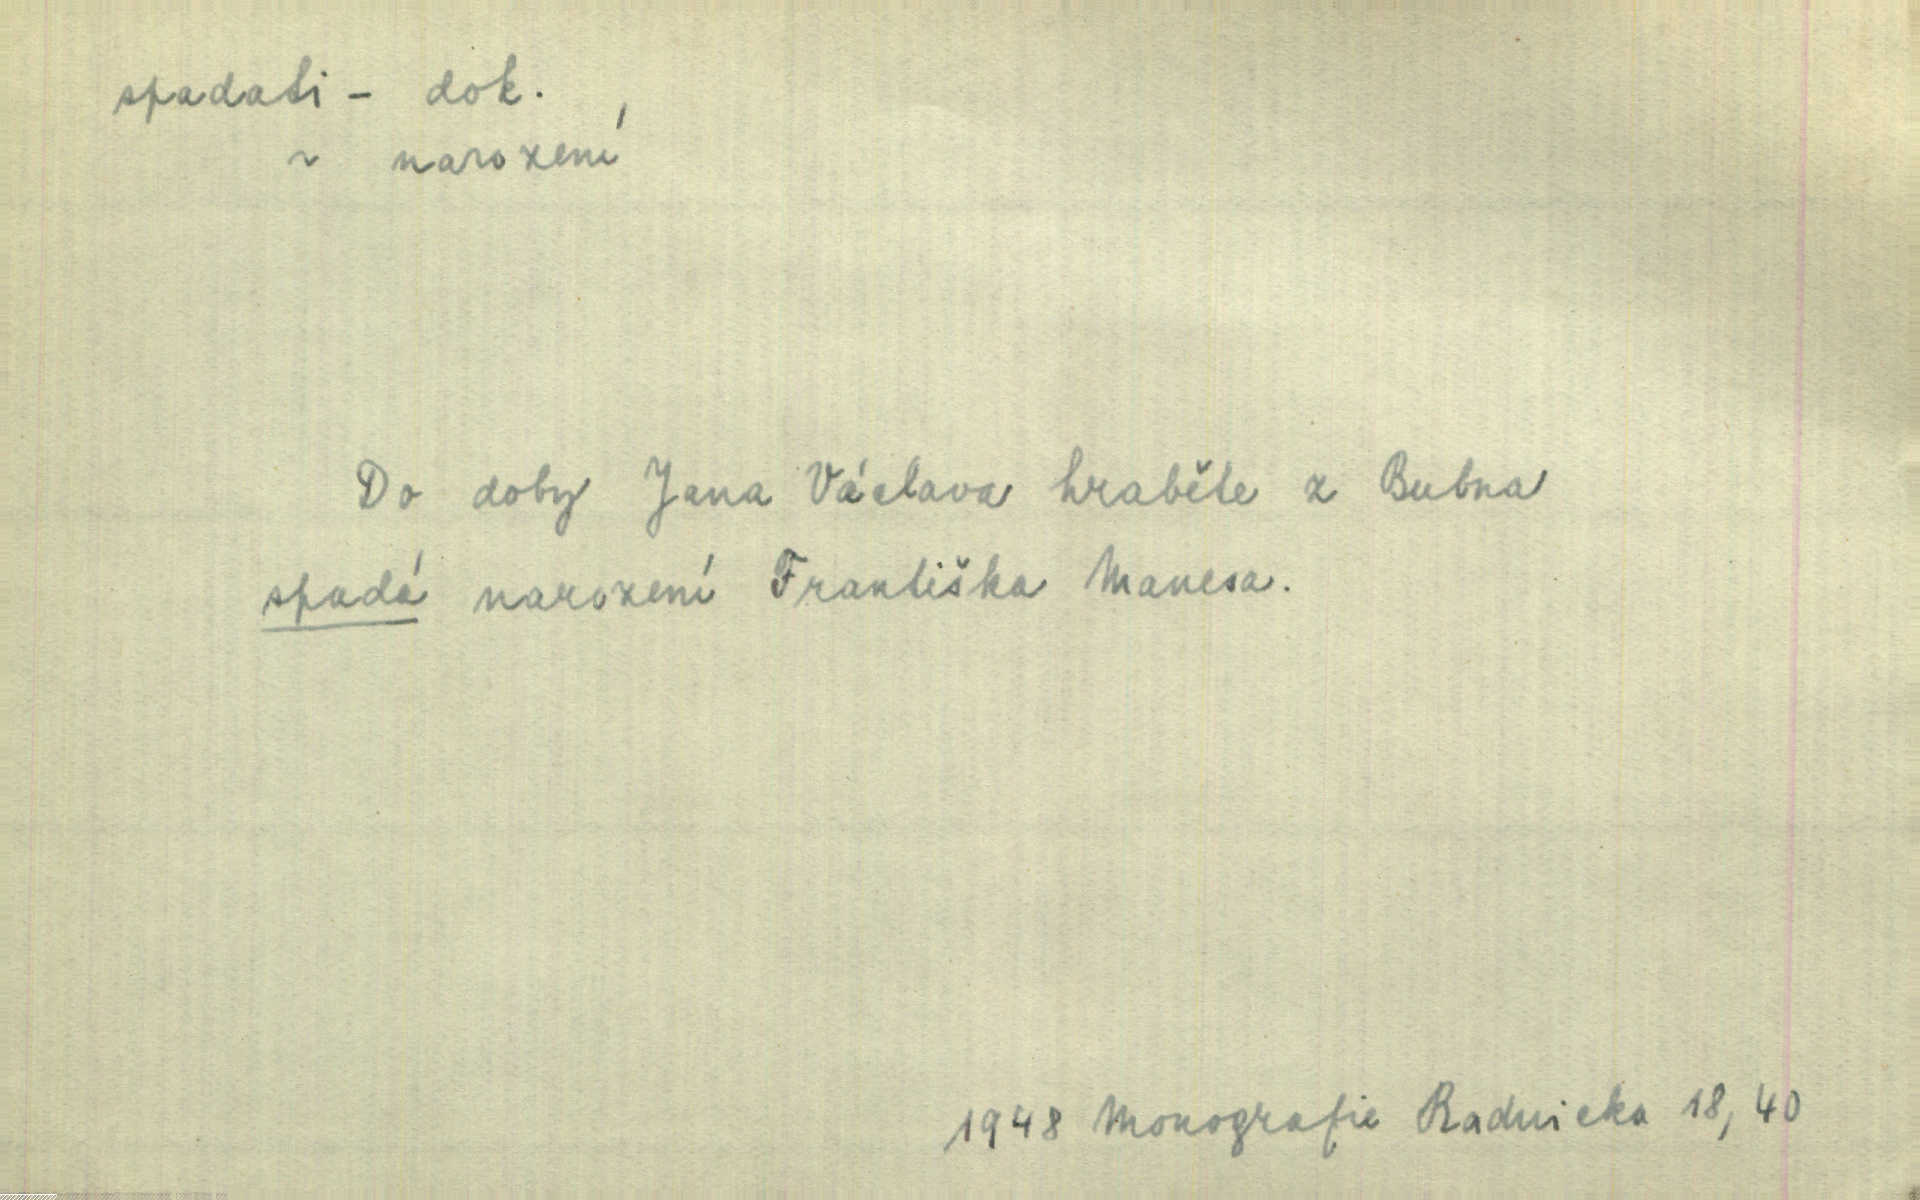 spadati - dok.
~ narození
Do doby Jana Václava hraběte z Bubna
spadá narození Františka Manesa.
1948 Monografie Radnicka 18, 40